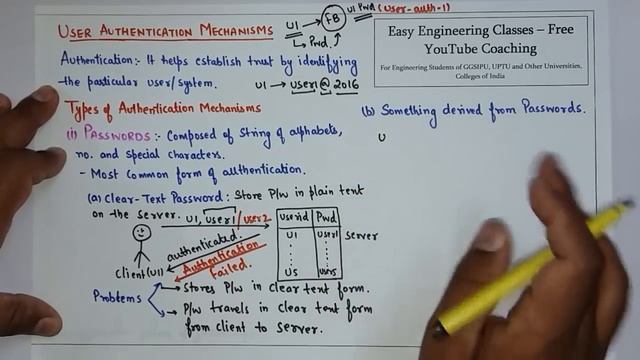 USER AUTHENTICATION MECHANISMS
U1 → FB
↳ Pwd.
U1 Pwd (user-auth-1)
Easy Engineering Classes – Free
YouTube Coaching
For Engineering Students of GGSIPU, UPTU and Other Universities,
Colleges of India
Authentication:- It helps establish trust by identifying
the particular user/system.
U1 → user1 @ 2016
Types of Authentication Mechanisms
(i) PASSWORDS :- Composed of string of alphabets,
no. and special characters.
- Most common form of authentication.
(a) Clear-Text Password: Store P/w in plain text
on the server.
U1, user1/user2
authenticated.
Authentication
Failed.
Client(U1)
userid Pwd
U1 user1
U5 user5
Server
Problems
→ Stores P/w in clear text form.
→ P/w travels in clear text form
from client to server.
(b) Something derived from Passwords.
U